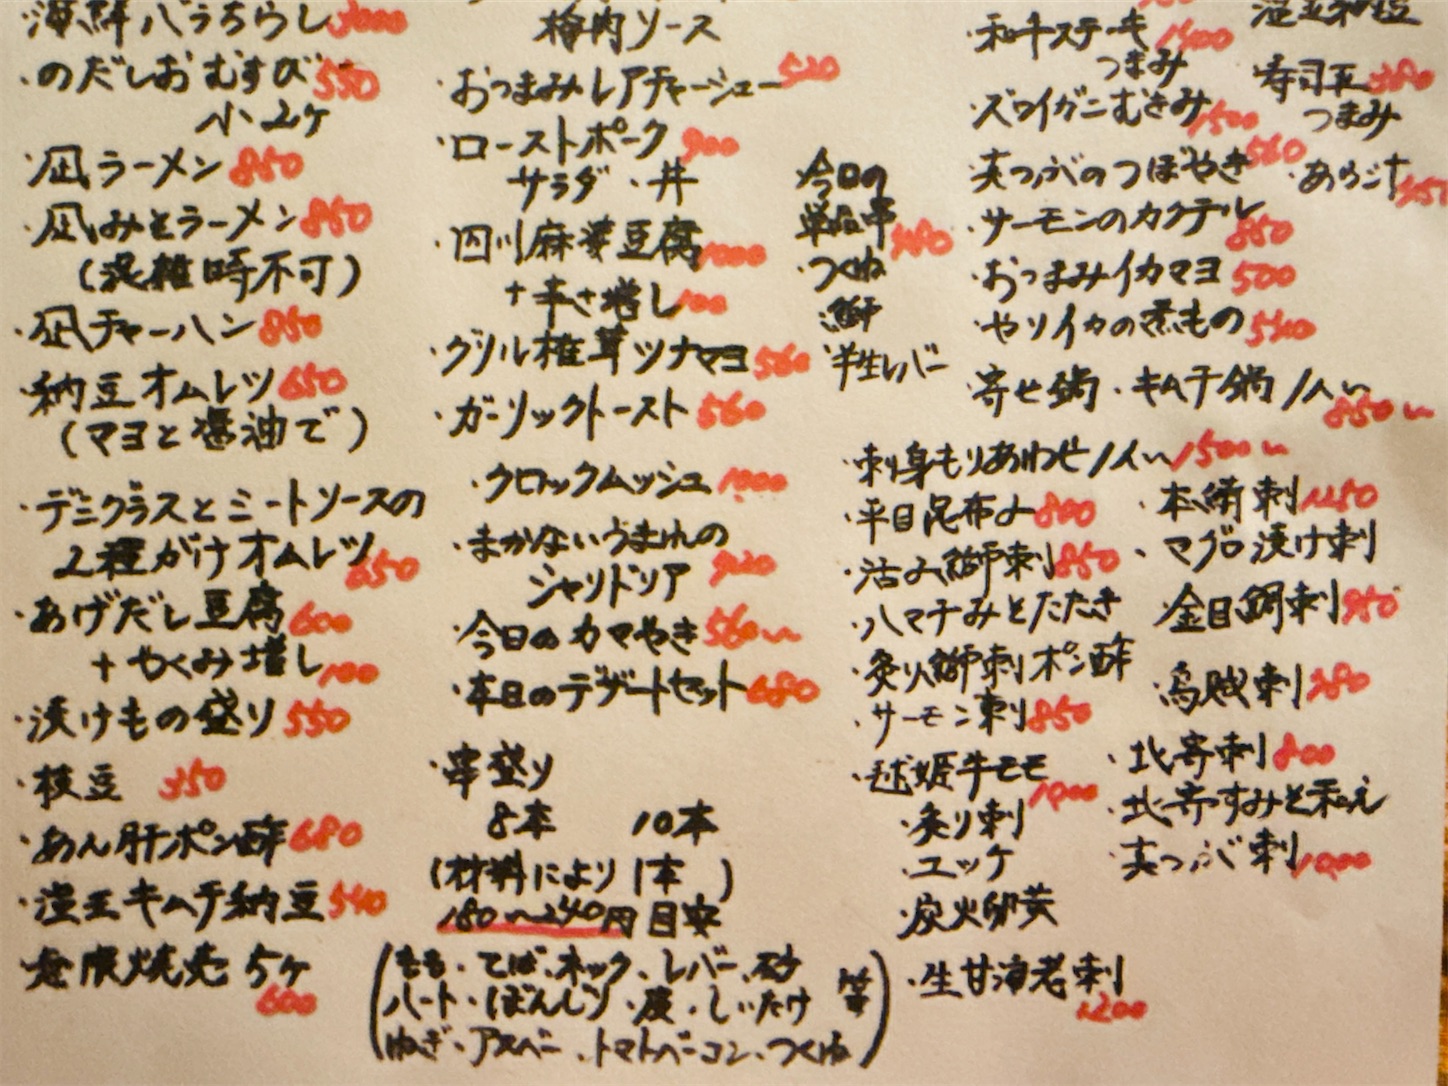 海鮮バラちらし 3000
・のだしおむすび 550
小2ケ
・凪ラーメン 850
・凪みそラーメン 850
(混雑時不可)
・凪チャーハン 850
・納豆オムレツ 650
(マヨと醤油で)
・デミグラスとミートソースの
2種がけオムレツ 650
・あげだし豆腐 600
+やくみ増し 100
・漬けもの盛り 550
・枝豆 350
・あん肝ポン酢 680
・温玉キムチ納豆 540
・無限焼売 5ケ
600
梅肉ソース
・おつまみレアチャーシュー 520
・ローストポーク 900
サラダ・丼
・四川麻婆豆腐 1000
+辛さ増し 100
・グリル椎茸ツナマヨ 560
・ガーリックトースト 560
・クロックムッシュ 1000
・まかないうまれの
シャリドリア 920
・今日のカマやき 560〜
・本日のデザートセット 680
・串盛り
8本 10本
(材料により1本)
180〜240円目安
(もも・てば・ネック、レバー、砂
ハート・ぼんじり・皮・しいたけ 等
ねぎ・アスベー、トマトベーコン、つくね)
今日の
単品串 380
・つくね
・鰤
・半生レバー
・和牛ステーキ 1400
つまみ
・ズワイガニむきみ 1500
・真つぶのつぼやき 560
・サーモンのカクテル 850
・おつまみイカマヨ 500
・やりイカの煮もの 540
・寄せ鍋・キムチ鍋 1人〜
850〜
・寿司玉 380
つまみ
・あら汁
・刺身もりあわせ1人〜 1500〜
・平目昆布〆 800
・活〆鰤刺 850
・ハマチみそたたき
・炙り鰤刺ポン酢
・サーモン刺 850
・毬姫牛モモ
1900
・炙り刺
・ユッケ
・炭火卵黄
・生甘海老刺
1200
・本鮪刺 1280
・マグロ漬け刺
・金目鯛刺 950
・烏賊刺 780
・北寄刺 800
・北寄すみそ和え
・真つぶ刺 1000